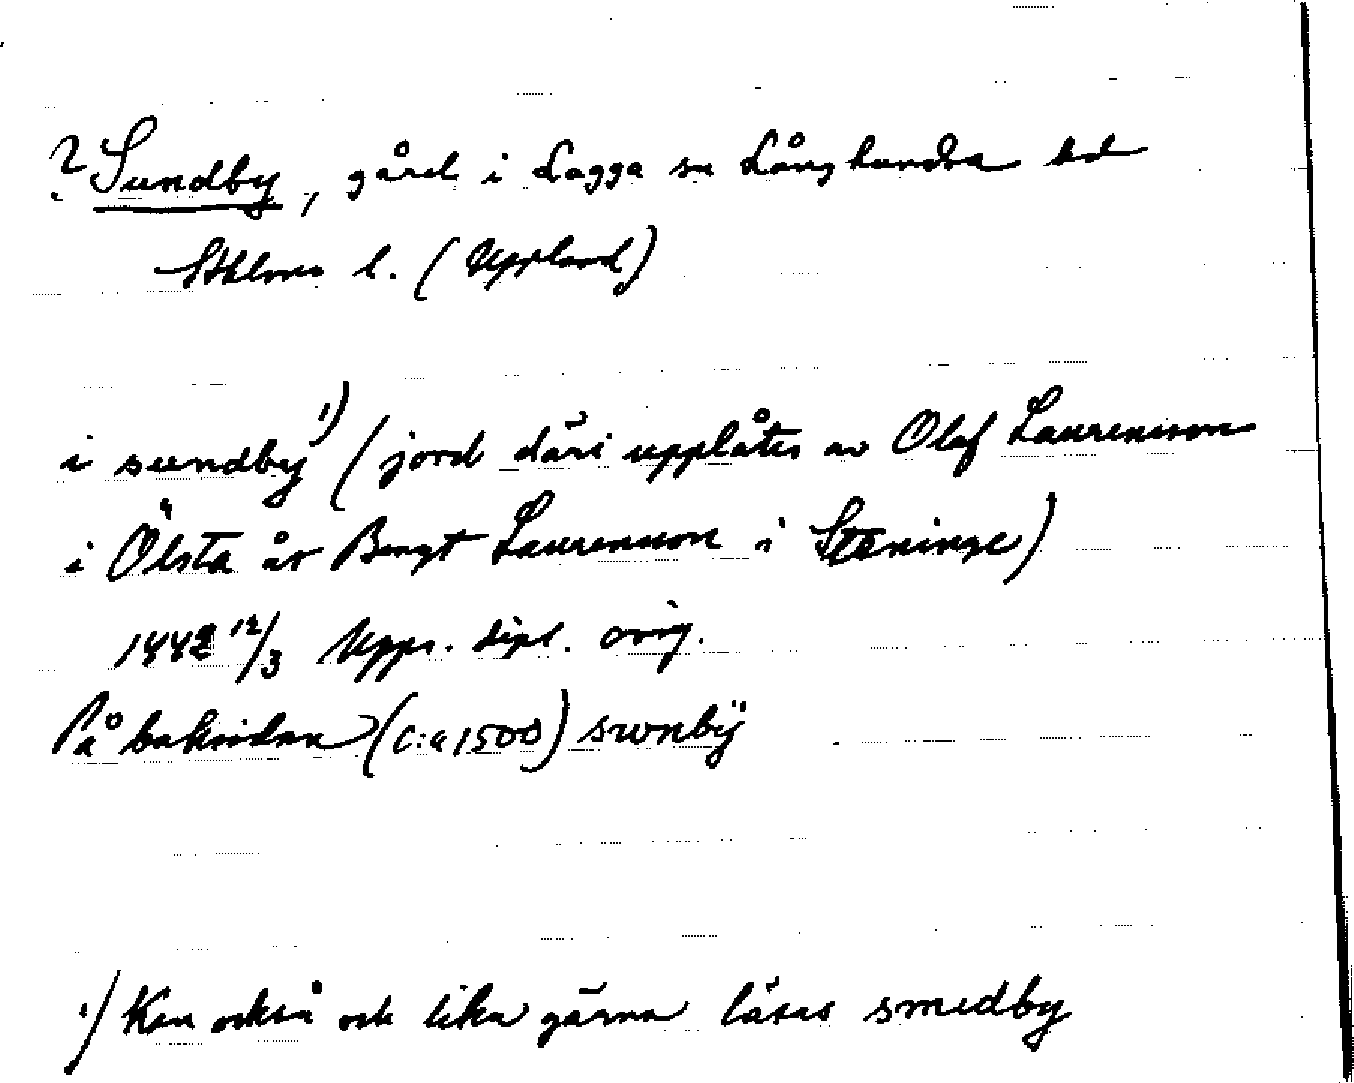 ? Sundby, gård i Lagga sn Långhundra hd
Sthlms l. (Uppland)
i sundby ¹) (jord däri upplåtes av Olaf Laurensson
i Ölsta åt Bengt Laurensson i Steninge)
1442 12/3 Upps. dipl. orig.
På baksidan (c:a 1500) swnbÿ
¹) Kan också och lika gärna läsas smidby